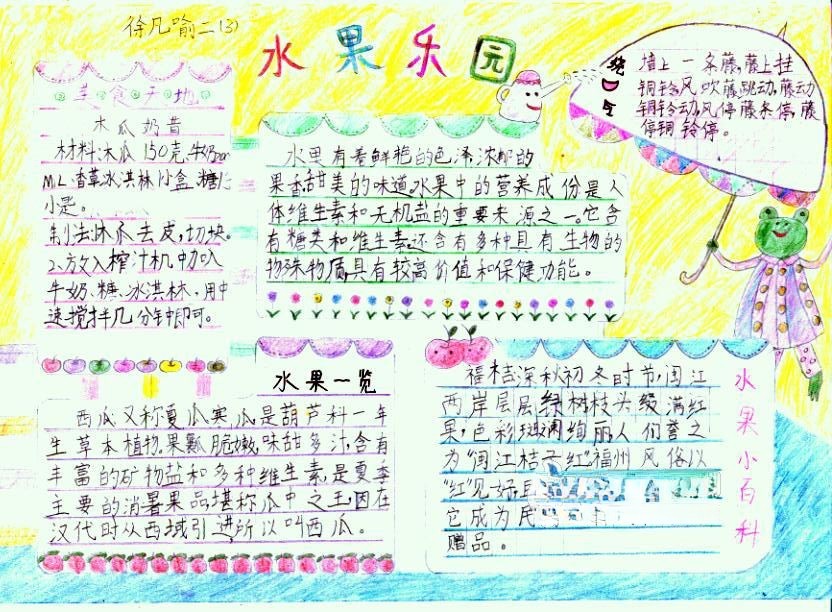 徐凡喻二(3)
水果乐园
美食天地
木瓜奶昔
材料:木瓜150克,牛奶
ML.香草冰淇林1小盒,糖
小匙。
去皮,切块。
2、放入榨汁机中加入
牛奶、糖、冰淇林,用中
速搅拌几分钟即可。
水果有着鲜艳的色泽,浓郁的
果香,甜美的味道。水果中的营养成份是人
体维生素和无机盐的重要来源之一。它含
有糖类和维生素,还含有多种具有生物的
物殊物质,具有较高价值和保健功能。
绕口令
墙上一条藤,藤上挂
铜铃,风吹藤跳动,藤动
铜铃动,风停藤条停,藤
停铜铃停。
水果一览
西瓜又称夏瓜寒瓜是葫芦科一年
生草本植物。果瓤脆嫩,味甜多汁,含有
丰富的矿物盐和多种维生素,是夏季
主要的消暑果品堪称瓜中之王,因在
汉代时从西域引进所以叫西瓜。
水果小百科
福桔深秋初冬时节,闽江
两岸层层绿树枝头缀满红
果,色彩斑斓绚丽人们誉之
为“闽江桔子红”福州风俗以
“红”见好且
它成为民
赠品。